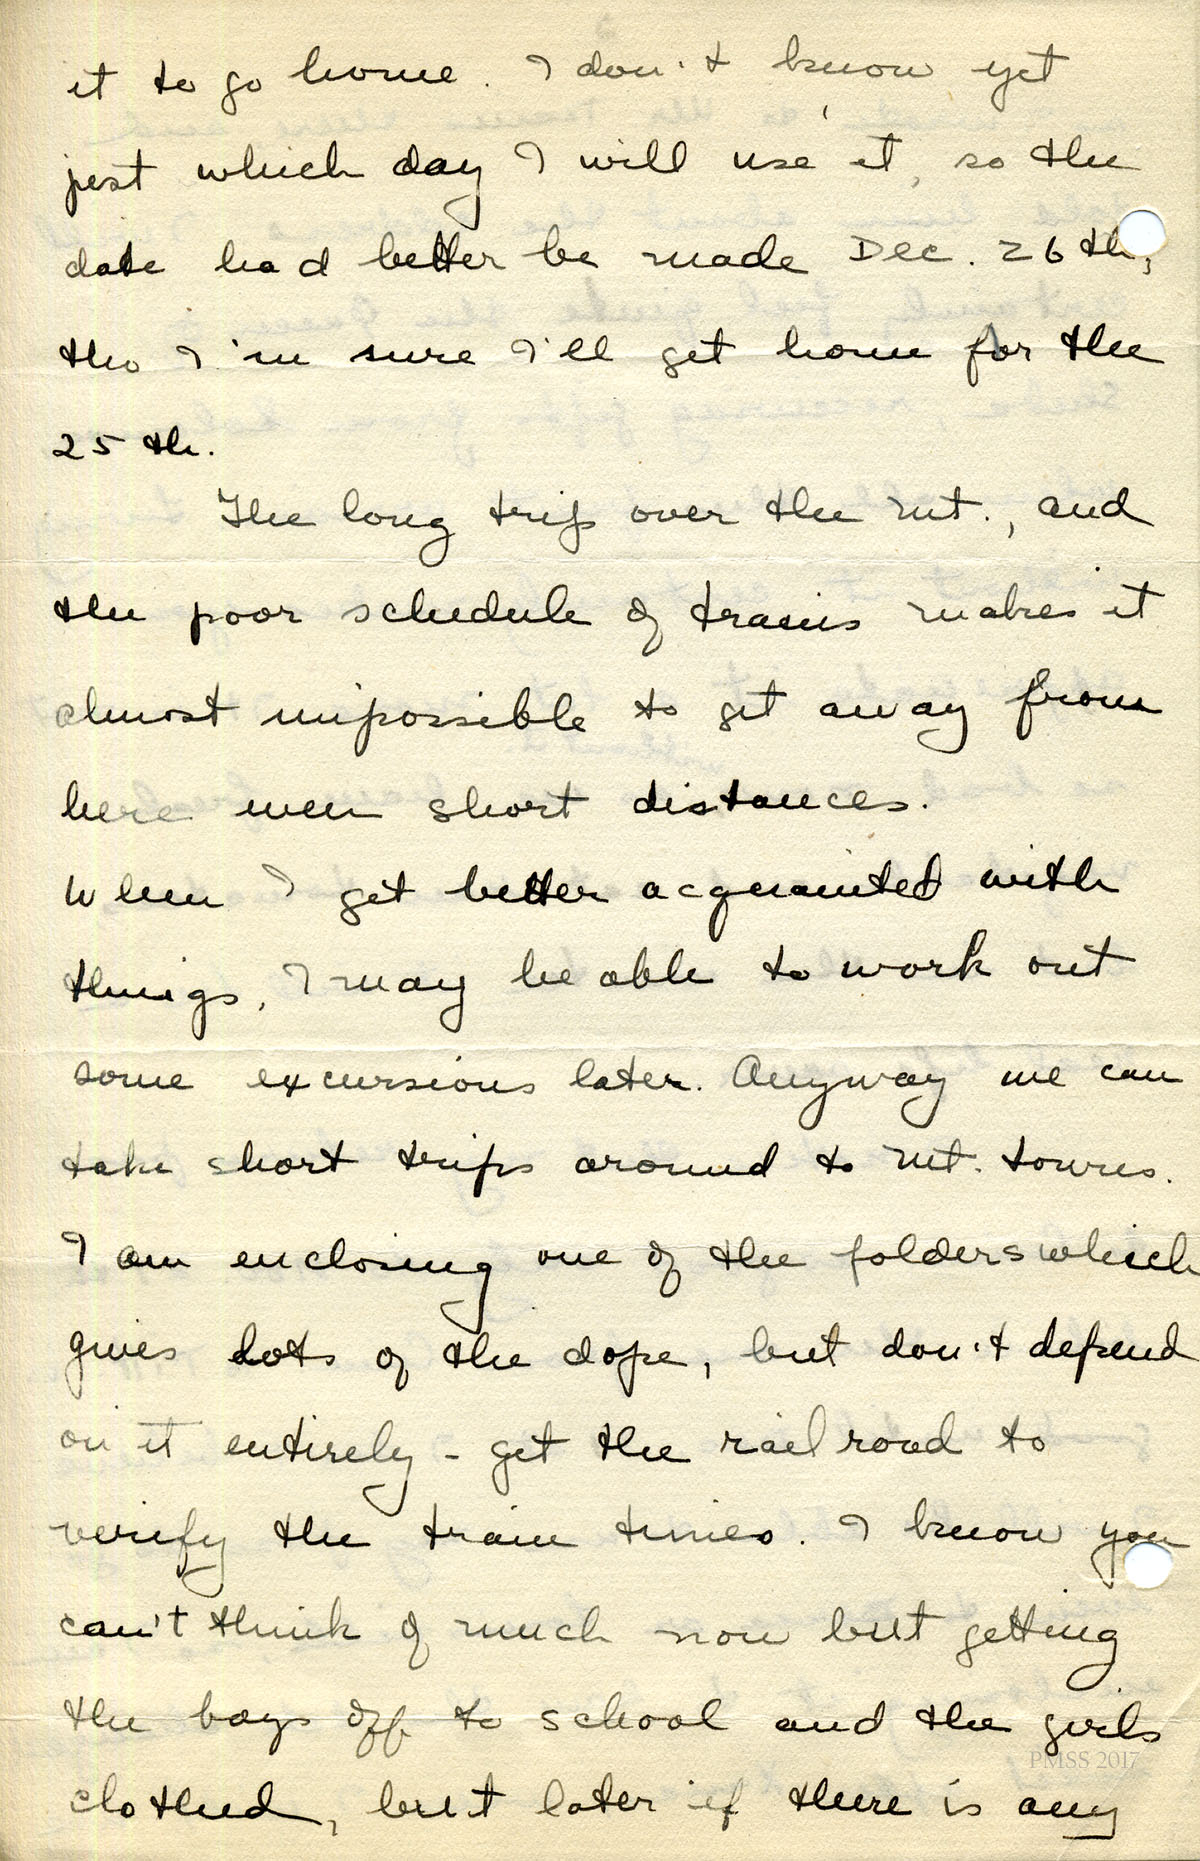 it to go home. I don't know yet
just which day I will use it, so the
date had better be made Dec. 26th,
tho I'm sure I'll get home for the
25th.
The long trip over the mt., and
the poor schedule of trains makes it
almost impossible to get away from
here even short distances.
When I get better acquainted with
things, I may be able to work out
some excursions later. Anyway we can
take short trips around to mt. towns.
I am enclosing one of the folders which
gives lots of the dope, but don't depend
on it entirely - get the railroad to
verify the train times. I know you
can't think of much now but getting
the boys off to school and the girls
PMSS 2017
clothed, but later if there is any